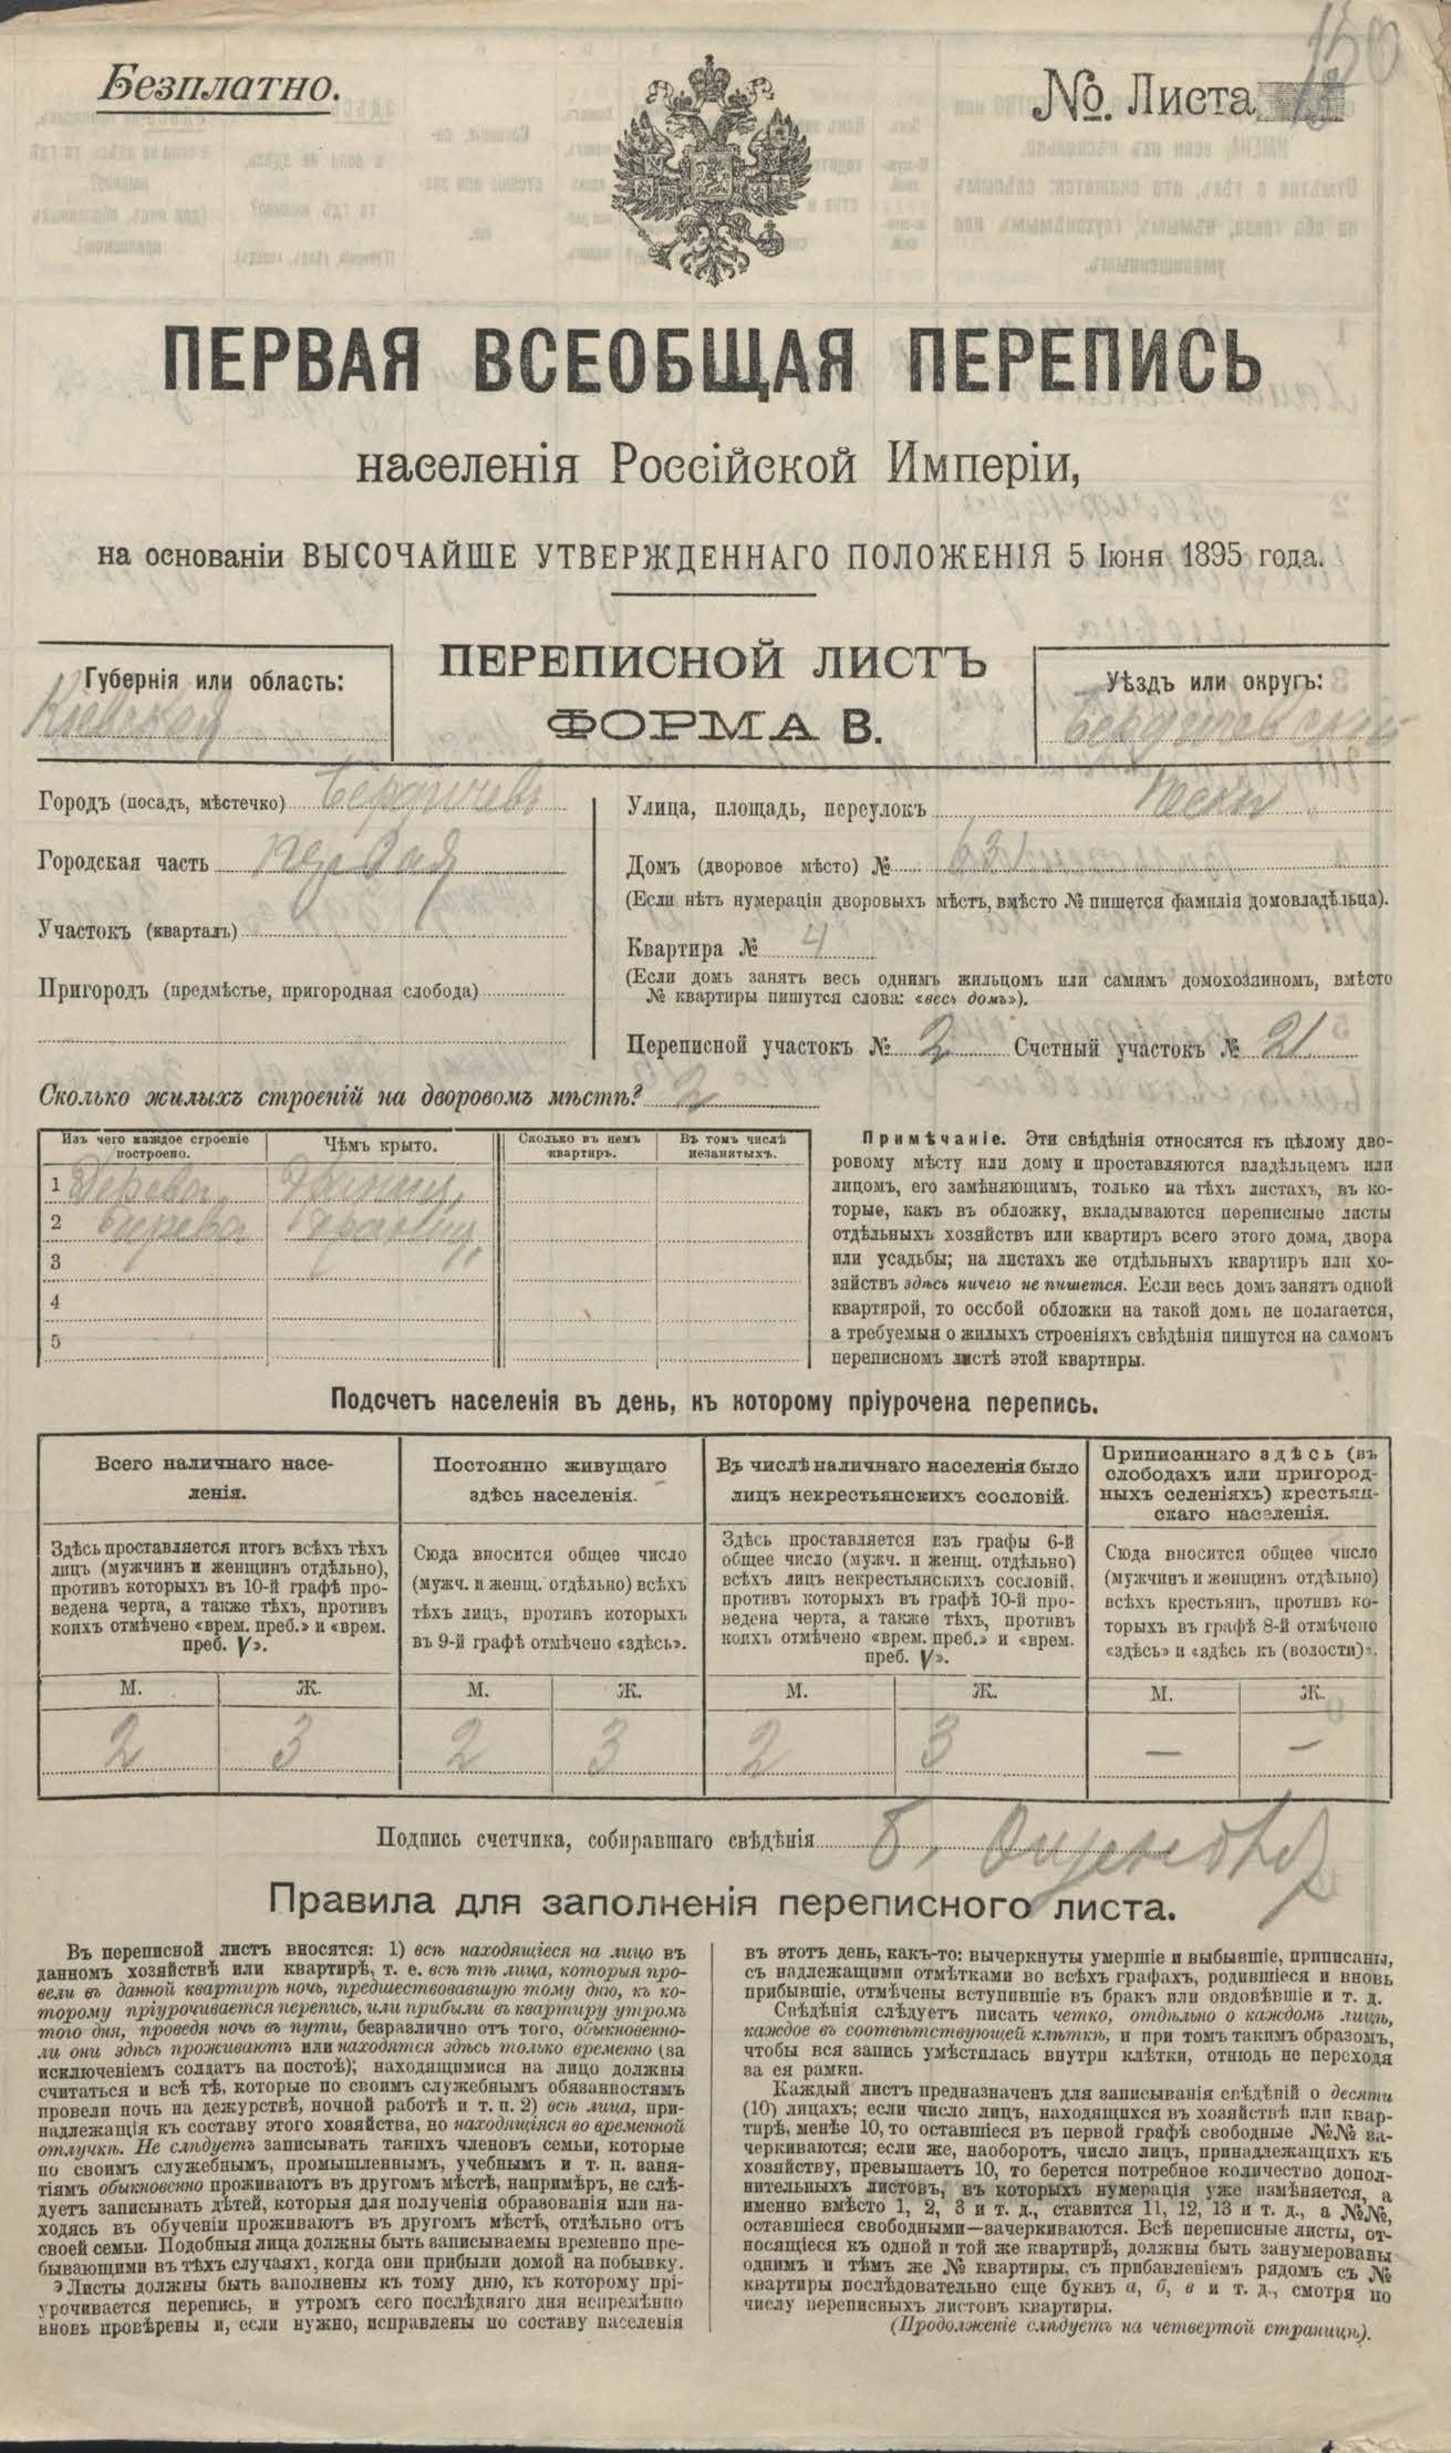 Безплатно.
№. Листа
150
ПЕРВАЯ ВСЕОБЩАЯ ПЕРЕПИСЬ
населенія Россійской Имперіи,
на основаніи ВЫСОЧАЙШЕ УТВЕРЖДЕННАГО ПОЛОЖЕНІЯ 5 Іюня 1895 года.
ПЕРЕПИСНОЙ ЛИСТЪ
ФОРМА В.
Губернія или область:
Кіевская
Уѣздъ или округъ:
Бердичевскій
Городъ (посадъ, мѣстечко) Бердичевъ
Городская часть первая
Участокъ (кварталъ)
Пригородъ (предмѣстье, пригородная слобода)
Улица, площадь, переулокъ Пески
Домъ (дворовое мѣсто) № 631
(Если нѣтъ нумераціи дворовыхъ мѣстъ, вмѣсто № пишется фамилія домовладѣльца).
Квартира № 4
(Если домъ занятъ весь однимъ жильцомъ или самимъ домохозяиномъ, вмѣсто
№ квартиры пишутся слова: «весь домъ»).
Переписной участокъ № 2 Счетный участокъ № 21
Сколько жилыхъ строеній на дворовомъ мѣстѣ? 2
Изъ чего каждое строеніе построено. Чѣмъ крыто. Сколько въ немъ квартиръ. Въ томъ числѣ незанятыхъ.
1 Дерева
2 Дерева
3
4
5
Примѣчаніе. Эти свѣдѣнія относятся къ цѣлому дво-
ровому мѣсту или дому и проставляются владѣльцемъ или
лицомъ, его замѣняющимъ, только на тѣхъ листахъ, въ ко-
торые, какъ въ обложку, вкладываются переписные листы
отдѣльныхъ хозяйствъ или квартиръ всего этого дома, двора
или усадьбы; на листахъ же отдѣльныхъ квартиръ или хо-
зяйствъ здѣсь ничего не пишется. Если весь домъ занятъ одной
квартирой, то особой обложки на такой домъ не полагается,
а требуемыя о жилыхъ строеніяхъ свѣдѣнія пишутся на самомъ
переписномъ листѣ этой квартиры.
Подсчетъ населенія въ день, къ которому пріурочена перепись.
Всего наличнаго насе-
ленія.
Здѣсь проставляется итогъ всѣхъ тѣхъ
лицъ (мужчинъ и женщинъ отдѣльно),
противъ которыхъ въ 10-й графѣ про-
ведена черта, а также тѣхъ, противъ
коихъ отмѣчено «врем. преб.» и «врем.
преб. V».
М. Ж.
2 3
Постоянно живущаго
здѣсь населенія.
Сюда вносится общее число
(мужч. и женщ. отдѣльно) всѣхъ
тѣхъ лицъ, противъ которыхъ
въ 9-й графѣ отмѣчено «здѣсь».
М. Ж.
2 3
Въ числѣ наличнаго населенія было
лицъ некрестьянскихъ сословій.
Здѣсь проставляется изъ графы 6-й
общее число (мужч. и женщ. отдѣльно)
всѣхъ лицъ некрестьянскихъ сословій,
противъ которыхъ въ графѣ 10-й про-
ведена черта, а также тѣхъ, противъ
коихъ отмѣчено «врем. преб.» и «врем.
преб. V».
М. Ж.
2 3
Приписаннаго здѣсь (въ
слободахъ или пригород-
ныхъ селеніяхъ) крестьян-
скаго населенія.
Сюда вносится общее число
(мужчинъ и женщинъ отдѣльно)
всѣхъ крестьянъ, противъ ко-
торыхъ въ графѣ 8-й отмѣчено
«здѣсь» и «здѣсь къ (волости)».
М. Ж.
— —
Подпись счетчика, собиравшаго свѣдѣнія
Правила для заполненія переписного листа.
Въ переписной листъ вносятся: 1) всѣ находящіеся на лицо въ
данномъ хозяйствѣ или квартирѣ, т. е. всѣ тѣ лица, которыя про-
вели въ данной квартирѣ ночь, предшествовавшую тому дню, къ ко-
торому пріурочивается перепись, или прибыли въ квартиру утромъ
того дня, проведя ночь въ пути, безразлично отъ того, обыкновенно-
ли они здѣсь проживаютъ или находятся здѣсь только временно (за
исключеніемъ солдатъ на постоѣ); находящимися на лицо должны
считаться и всѣ тѣ, которые по своимъ служебнымъ обязанностямъ
провели ночь на дежурствѣ, ночной работѣ и т. п. 2) всѣ лица, при-
надлежащія къ составу этого хозяйства, но находящіяся во временной
отлучкѣ. Не слѣдуетъ записывать такихъ членовъ семьи, которые
по своимъ служебнымъ, промышленнымъ, учебнымъ и т. п. заня-
тіямъ обыкновенно проживаютъ въ другомъ мѣстѣ, напримѣръ, не слѣ-
дуетъ записывать дѣтей, которыя для полученія образованія или на-
ходясь въ обученіи проживаютъ въ другомъ мѣстѣ, отдѣльно отъ
своей семьи. Подобныя лица должны быть записываемы временно пре-
бывающими въ тѣхъ случаяхъ, когда они прибыли домой на побывку.
Листы должны быть заполнены къ тому дню, къ которому прі-
урочивается перепись, и утромъ сего послѣдняго дня непремѣнно
вновь провѣрены и, если нужно, исправлены по составу населенія
въ этотъ день, какъ-то: вычеркнуты умершіе и выбывшіе, приписаны,
съ надлежащими отмѣтками во всѣхъ графахъ, родившіеся и вновь
прибывшіе, отмѣчены вступившіе въ бракъ или овдовѣвшіе и т. д.
Свѣдѣнія слѣдуетъ писать четко, отдѣльно о каждомъ лицѣ,
каждое въ соотвѣтствующей клѣткѣ, и при томъ такимъ образомъ,
чтобы вся запись умѣстилась внутри клѣтки, отнюдь не переходя
за ея рамки.
Каждый листъ предназначенъ для записыванія свѣдѣній о десяти
(10) лицахъ; если число лицъ, находящихся въ хозяйствѣ или квар-
тирѣ, менѣе 10, то оставшіеся въ первой графѣ свободные №№ за-
черкиваются; если же, наоборотъ, число лицъ, принадлежащихъ къ
хозяйству, превышаетъ 10, то берется потребное количество допол-
нительныхъ листовъ, въ которыхъ нумерація уже измѣняется, а
именно вмѣсто 1, 2, 3 и т. д., ставится 11, 12, 13 и т. д., а №№,
оставшіеся свободными—зачеркиваются. Всѣ переписные листы, от-
носящіеся къ одной и той же квартирѣ, должны быть занумерованы
однимъ и тѣмъ же № квартиры, съ прибавленіемъ рядомъ съ №
квартиры послѣдовательно еще буквъ а, б, в и т. д., смотря по
числу переписныхъ листовъ квартиры.
(Продолженіе слѣдуетъ на четвертой страницѣ).